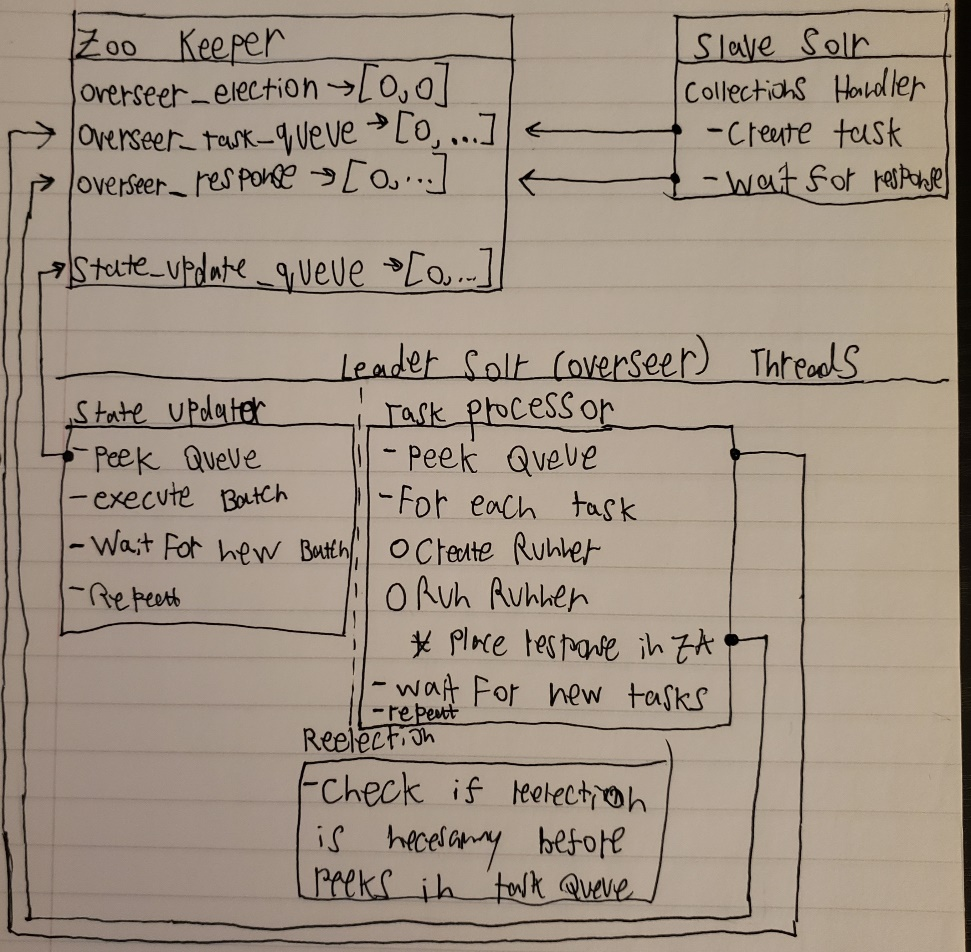 Zoo Keeper
overseer_election →[0,0]
overseer_task_queue →[0,...]
overseer_response →[0,...]
State_update_queue →[0,...]
Slave Solr
Collections Handler
- Create task
- wait for response
Leader Solr (overseer) Threads
State updater
- Peek Queue
- execute Batch
- Wait For new Batch
- Repeat
Task processor
- Peek Queue
- For each task
O Create Runner
O Run Runner
* Place response in ZK
- wait For new tasks
- repeat
Reelection
- Check if reelection
is necesarry before
Peeks in task Queue